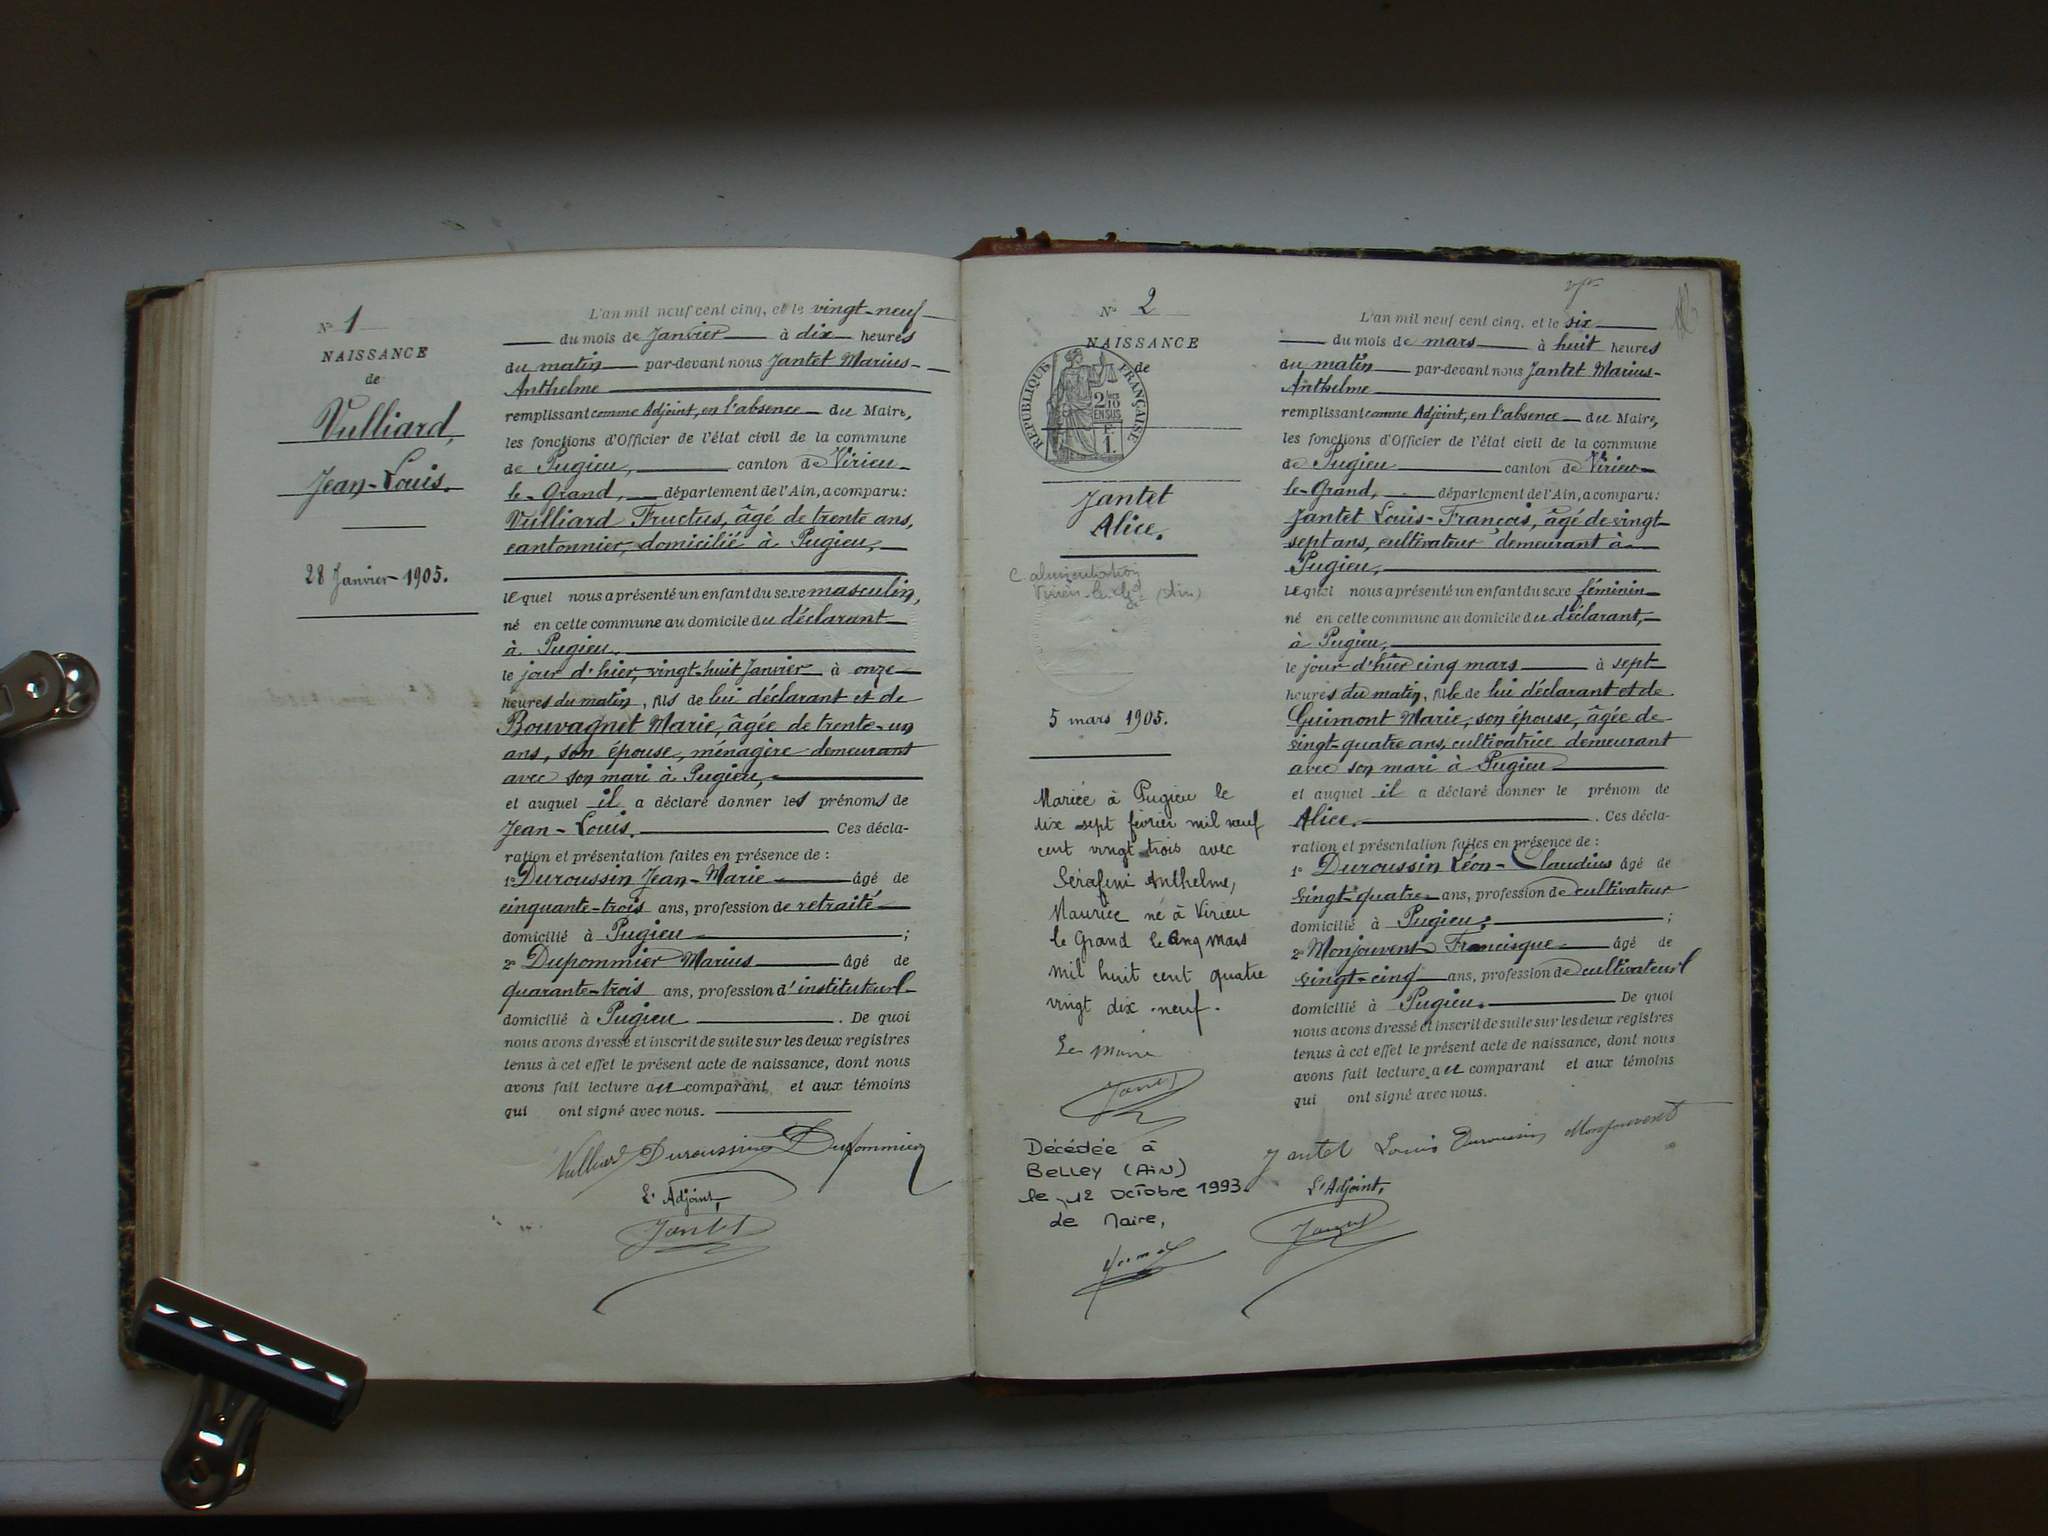 N° 1
NAISSANCE
de
Vulliard,
Jean-Louis.
28 Janvier 1905.
L'an mil neuf cent cinq, et le vingt-neuf
du mois de Janvier à dix heures
du matin par-devant nous Jantet Marius-
Anthelme
remplissant comme Adjoint, en l'absence du Maire,
les fonctions d'Officier de l'état civil de la commune
de Pugieu, canton de Virieu-
le-Grand, département de l'Ain, a comparu:
Vulliard Fructus, âgé de trente ans,
cantonnier, domicilié à Pugieu,
lequel nous a présenté un enfant du sexe masculin,
né en cette commune au domicile du déclarant
à Pugieu.
le jour d'hier, vingt-huit Janvier à onze
heures du matin, fils de lui déclarant et de
Bouvagnet Marie, âgée de trente-un
ans, son épouse, ménagère demeurant
avec son mari à Pugieu,
et auquel il a déclaré donner les prénoms de
Jean-Louis. Ces décla-
ration et présentation faites en présence de :
1° Duroussin Jean-Marie âgé de
cinquante-trois ans, profession de retraité
domicilié à Pugieu ;
2° Dupommier Marius âgé de
quarante-trois ans, profession d'instituteur
domicilié à Pugieu . De quoi
nous avons dressé et inscrit de suite sur les deux registres
tenus à cet effet le présent acte de naissance, dont nous
avons fait lecture au comparant, et aux témoins
qui ont signé avec nous.
Vulliard Duroussin Dupommier
L'Adjoint,
Jantet
N° 2
NAISSANCE
de
RÉPUBLIQUE FRANÇAISE
2/10
EN SUS
F.
1.
Jantet
Alice.
C. alimentation
5 mars 1905.
Mariée à Pugieu le
dix sept février mil neuf
cent vingt trois avec
Sérafini Anthelme,
Maurice né à Virieu
le Grand le cinq mars
mil huit cent quatre
vingt dix-neuf.
Le Maire
Jantet
Décédée à
Belley (Ain)
le 12 Octobre 1993.
Le Maire,
L'an mil neuf cent cinq, et le six
du mois de mars à huit heures
du matin par-devant nous Jantet Marius-
Anthelme
remplissant comme Adjoint, en l'absence du Maire,
les fonctions d'Officier de l'état civil de la commune
de Pugieu canton de Virieu-
le-Grand, département de l'Ain, a comparu:
Jantet Louis-François, âgé de vingt-
sept ans, cultivateur demeurant à
Pugieu,
lequel nous a présenté un enfant du sexe féminin
né en cette commune au domicile du déclarant,
à Pugieu,
le jour d'hier cinq mars à sept
heures du matin, fille de lui déclarant et de
Guimont Marie, son épouse, âgée de
vingt-quatre ans, cultivatrice demeurant
avec son mari à Pugieu
et auquel il a déclaré donner le prénom de
Alice. . Ces décla-
ration et présentation faites en présence de :
1° Duroussin Léon-Claudius âgé de
vingt-quatre ans, profession de cultivateur
domicilié à Pugieu, ;
2° Monjouvent Francisque âgé de
vingt-cinq ans, profession de cultivateur
domicilié à Pugieu. De quoi
nous avons dressé et inscrit de suite sur les deux registres
tenus à cet effet le présent acte de naissance, dont nous
avons fait lecture au comparant et aux témoins
qui ont signé avec nous.
Jantet Louis Duroussin Monjouvent
L'Adjoint,
Jantet